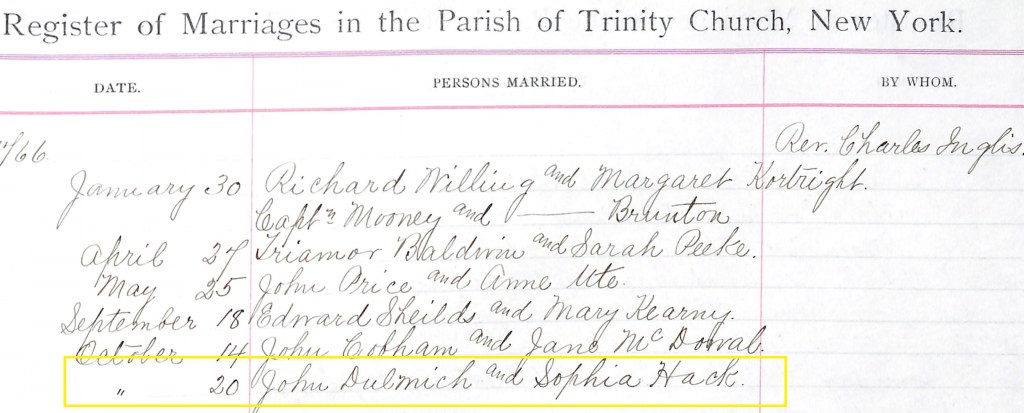 Register of Marriages in the Parish of Trinity Church, New York.
DATE. PERSONS MARRIED. BY WHOM.
1766. Rev. Charles Inglis.
January 30 Richard Willing and Margaret Kortright.
Captn Mooney and —— Brunton
April 27 Triamor Baldwin and Sarah Peeke.
May 25 John Price and Anne Ute.
September 18 Edward Sheilds and Mary Kearny.
October 14 John Cobham and Jane McDowal.
" 20 John Dulmich and Sophia Hack.